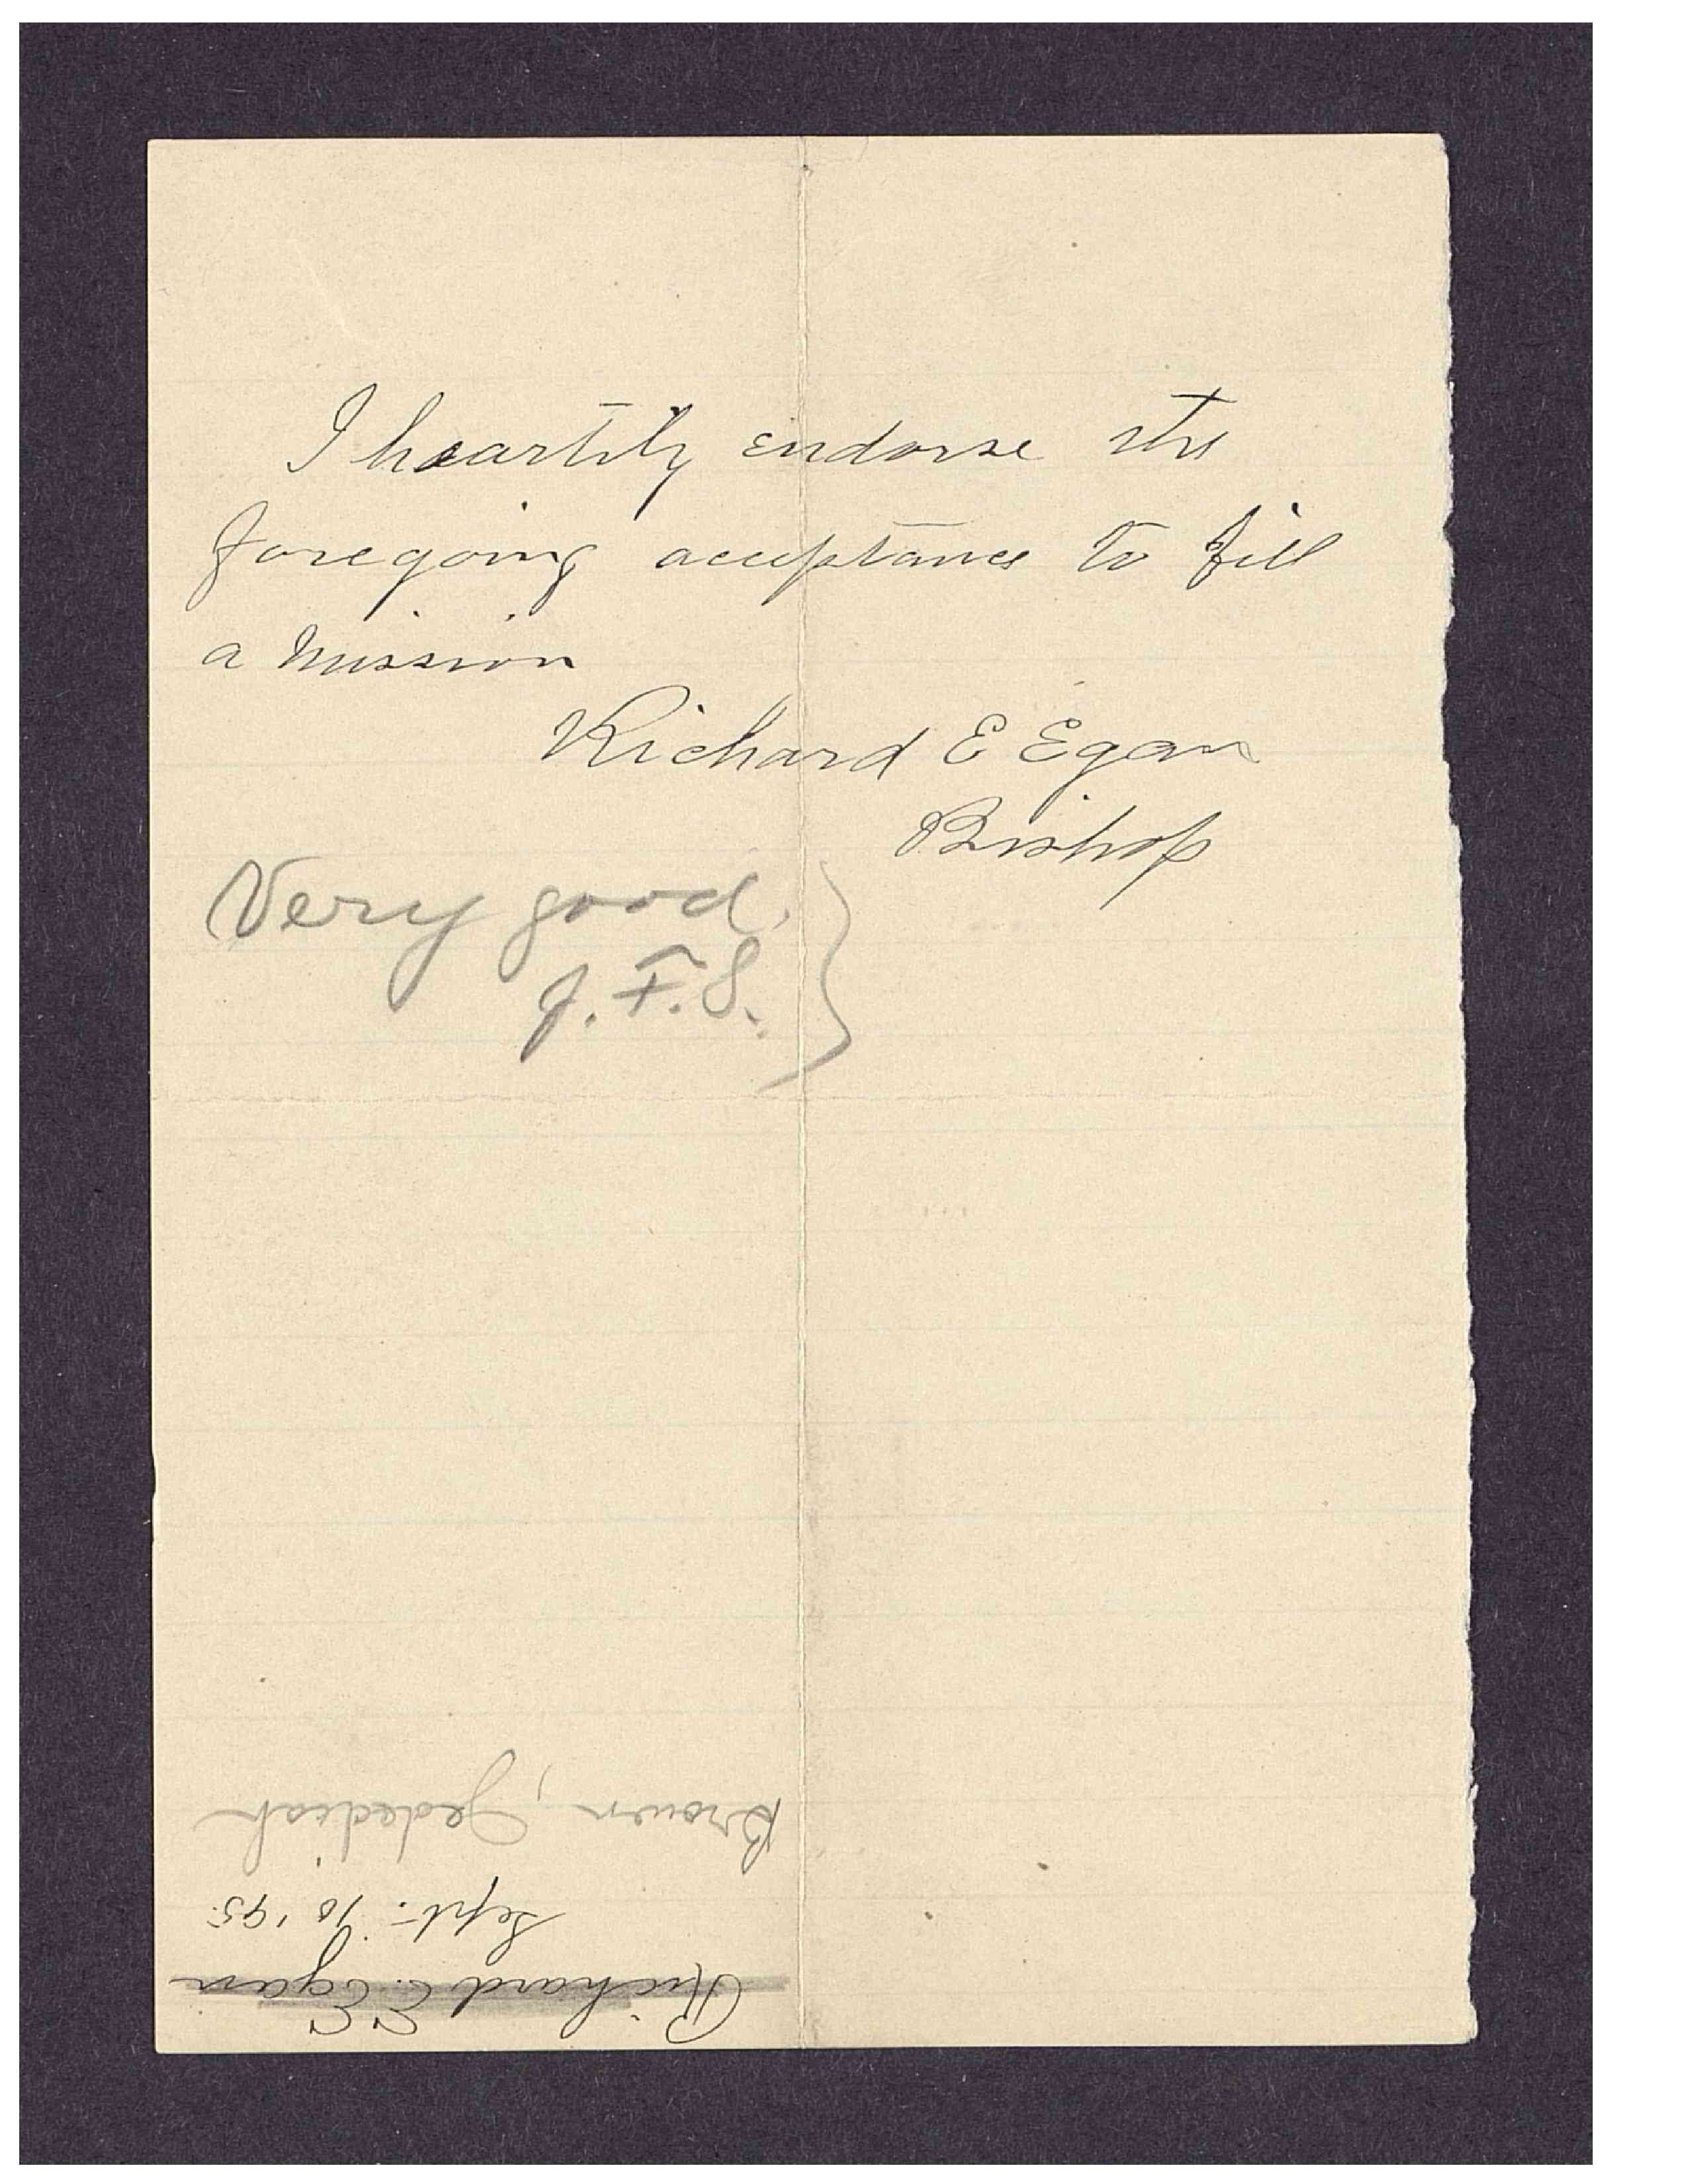 I heartily endorse the
foregoing acceptance to fill
a mission
Richard E Egan
Bishop
Very good.
J. F. S.
Richard E. Egan
Sept. 10 '95.
Brown, Jedediah